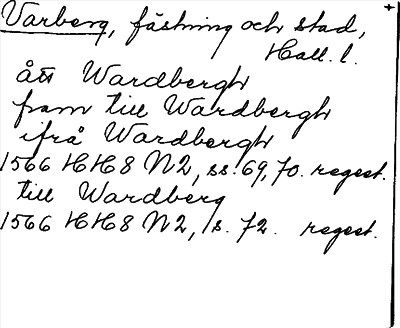 Varberg, fästning och stad,
Hall. l.
ått Wardbergh
fram till Wardbergh
ifrå Wardbergh
1566 HH8 N2, ss. 69, 70. regest.
till Wardberg
1566 HH8 N2, s. 72. regest.